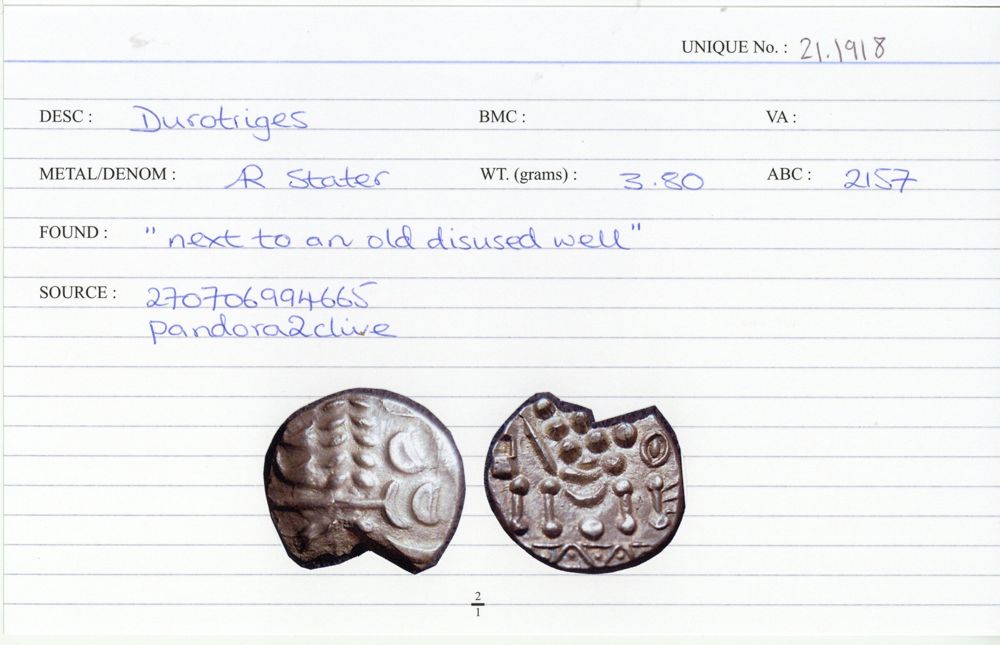 UNIQUE No. : 21.1918
DESC : Durotriges BMC : VA :
METAL/DENOM : AR Stater WT. (grams) : 3.80 ABC : 2157
FOUND : "next to an old disused well"
SOURCE : 270706994665
pandora2clive
2
1